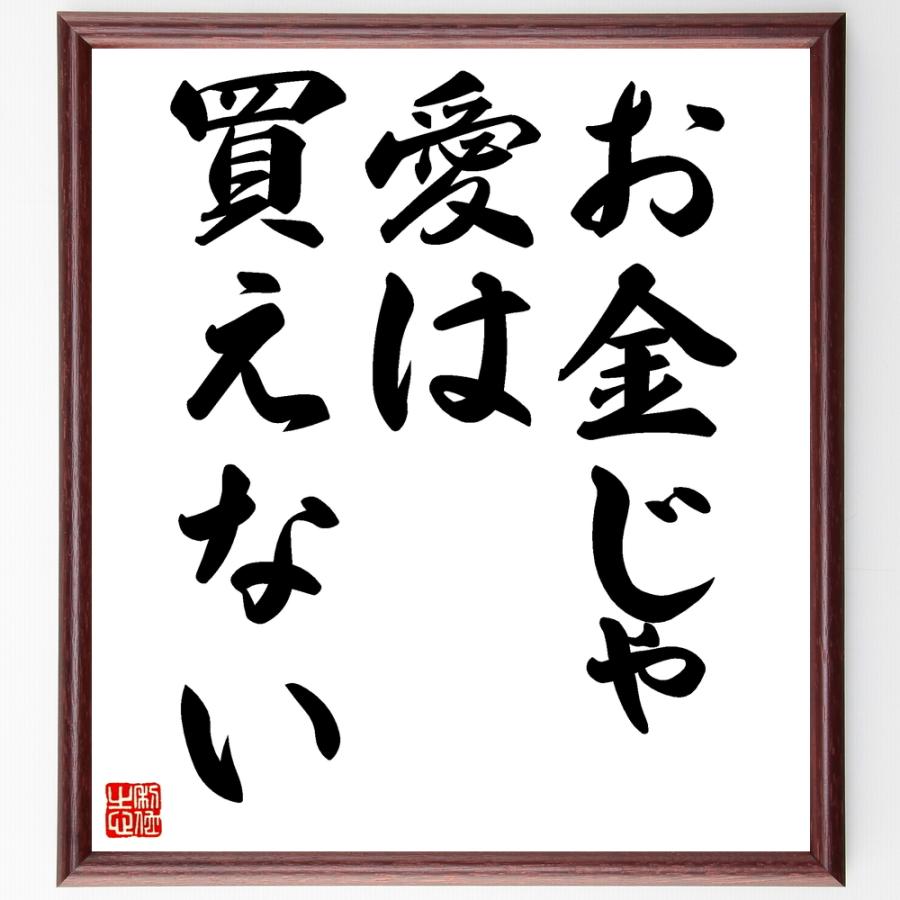 お金じゃ
愛は
買えない